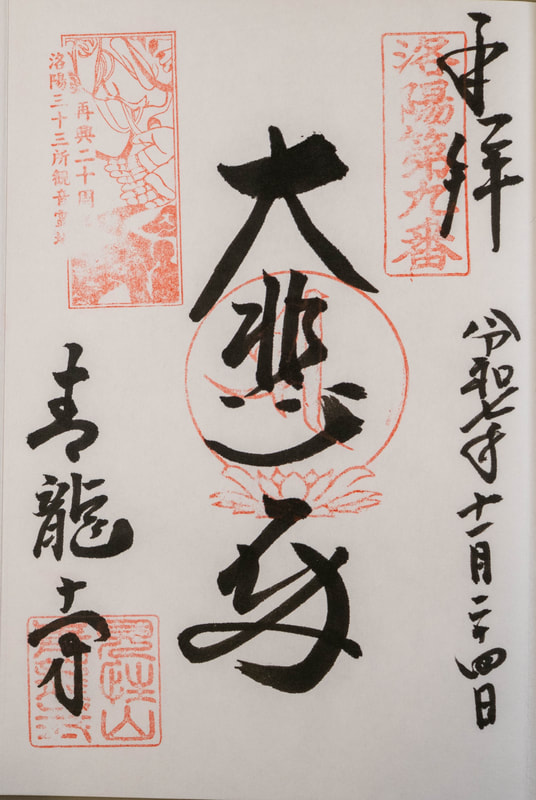 奉拝
洛陽第九番
令和七年十一月二十四日
大悲殿
再興二十周
洛陽三十三所観音霊場
青龍寺